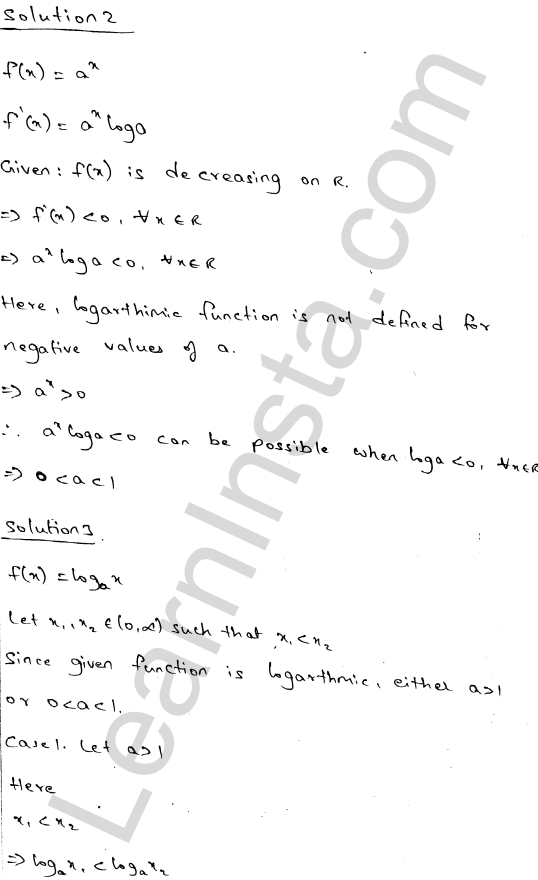 Solution 2
f(x) = aˣ
f'(x) = aˣ log a
Given : f(x) is decreasing on R.
=> f'(x) < 0, ∀ x ∈ R
=> aˣ log a < 0, ∀ x ∈ R
Here, logarthimic function is not defined for
negative values of a.
=> aˣ > 0
∴ aˣ log a < 0 can be possible when log a < 0, ∀ x ∈ R
=> 0 < a < 1
Solution 3
f(x) = logₐ x
Let x₁, x₂ ∈ (0, ∞) such that x₁ < x₂
Since given function is logarthmic, either a > 1
or 0 < a < 1.
Case 1. Let a > 1
Here
x₁ < x₂
=> logₐ x₁ < logₐ x₂
LearnInsta.com